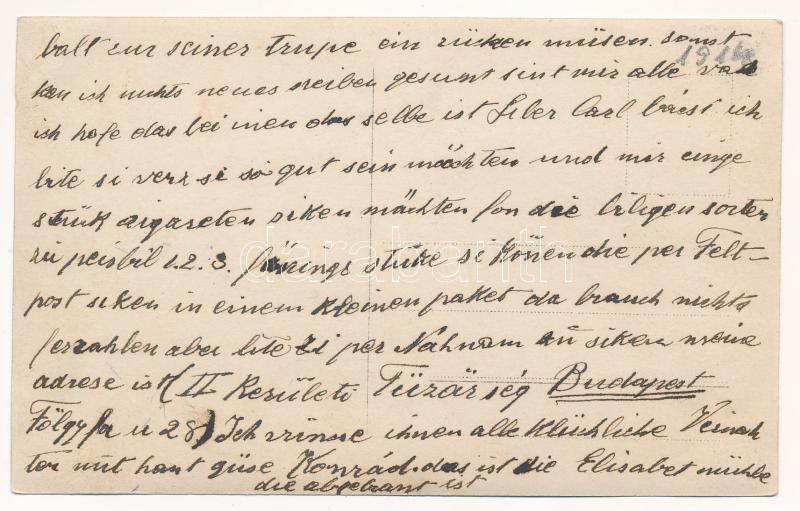 balt zur seiner trupe ein rüken müsen. sonst
1914
kan ich nichts neues sreiben gesunt sint mir alle
ich hofe das bei inen das selbe ist Liber Carl bácsi ich
bite si verz si so gut sein möchten und mir einge
stük zigareten siken möchten fon die biligen sorten
zu peisbil 1.2.3. stüke se können die per Felt-
post siken in einem kleinen paket da brauch nichts
ferzahlen aber bite si per Nahnam zu siken meine
adrese ist (II Kerületi Tüzárség Budapest
Fölgyfa u 28) Ich vinse ihnen alle klüchliche Veinach
ten mit hant güse Konrád. das ist die Elisabet mühle
die abgebrant ist
darabanth